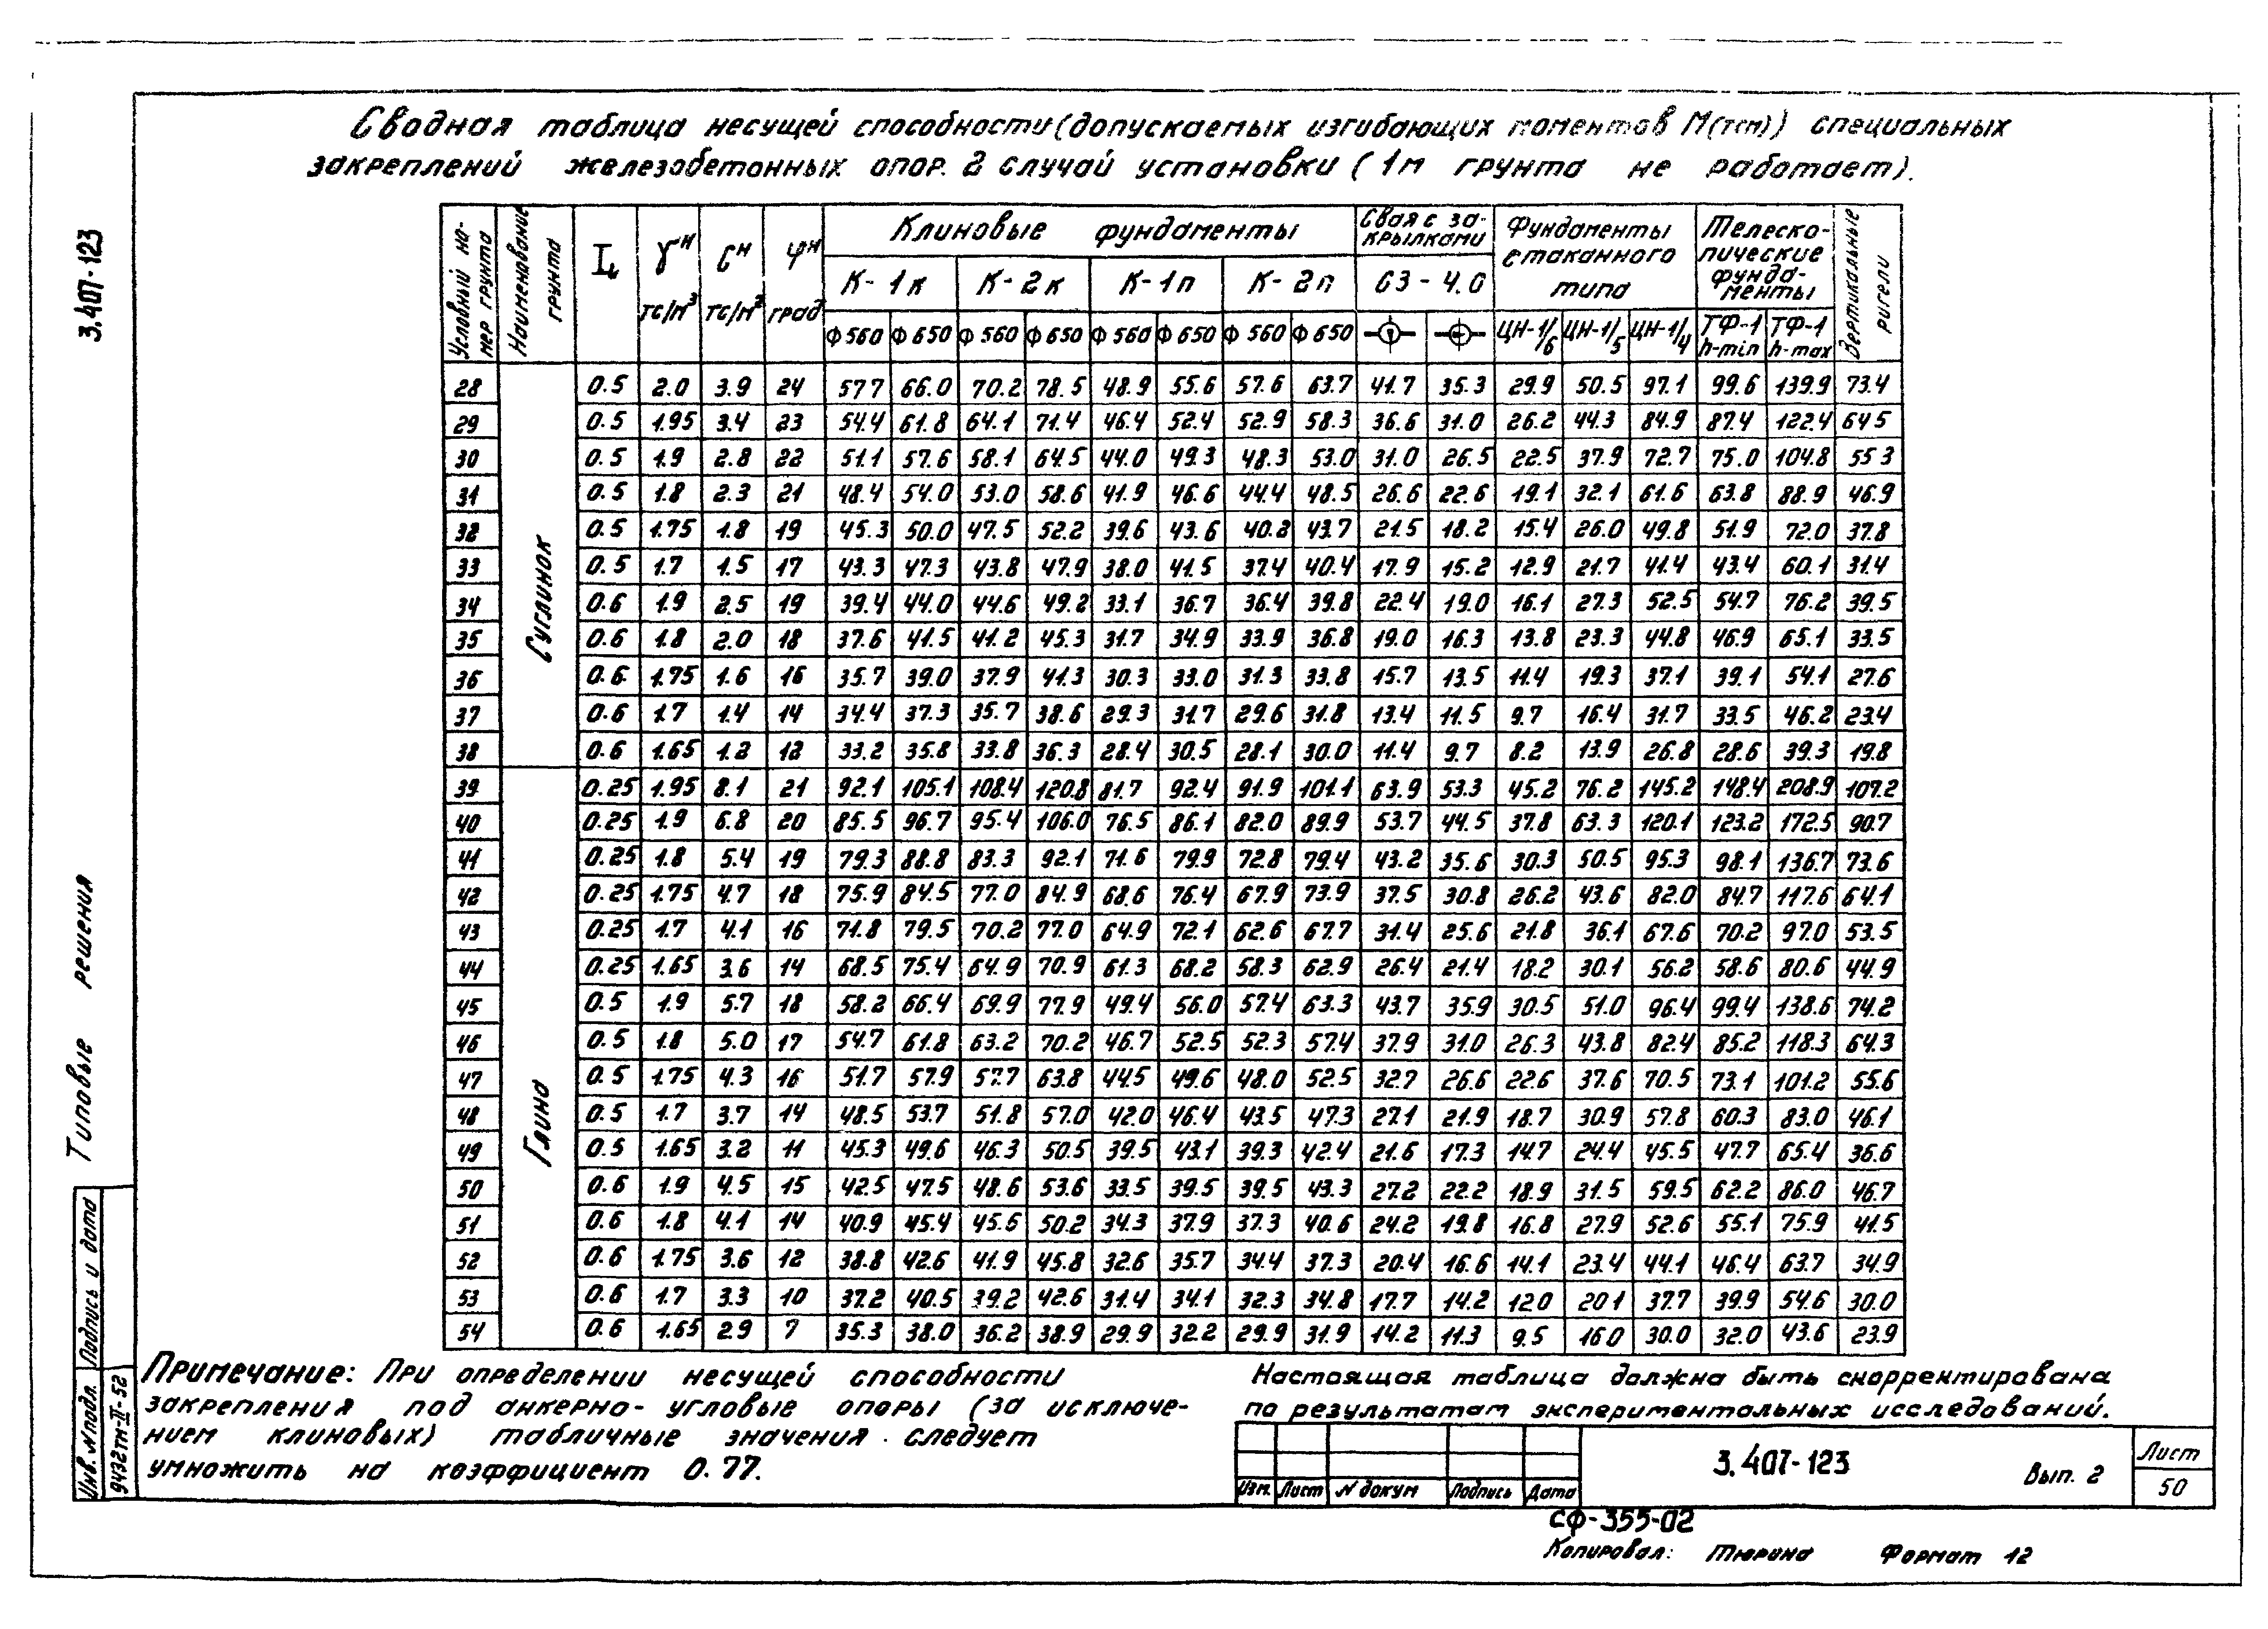 Сводная таблица несущей способности (допускаемых изгибающих моментов М(тсм)) специальных
закреплений железобетонных опор. 2 случай установки (1м грунта не работает).
3.407-123
Типовые решения
Условный номер грунта | Наименование грунта | IL | γн тс/м³ | Сн тс/м² | φн град | Клиновые фундаменты | Свая с закрылками | Фундаменты стаканного типа | Телескопические фундаменты | Вертикальные ригели
К-1к | К-2к | К-1п | К-2п | СЗ-4.0
Ф560 | Ф650 | Ф560 | Ф650 | Ф560 | Ф650 | Ф560 | Ф650 | ЦН-1/6 | ЦН-1/5 | ЦН-1/4 | ТФ-1 h-min | ТФ-1 h-max
Суглинок
28 0.5 2.0 3.9 24 577 66.0 70.2 78.5 48.9 55.6 57.6 63.7 41.7 35.3 29.9 50.5 97.1 99.6 139.9 73.4
29 0.5 1.95 3.4 23 54.4 61.8 64.1 71.4 46.4 52.4 52.9 58.3 36.6 31.0 26.2 44.3 84.9 87.4 122.4 645
30 0.5 1.9 2.8 22 51.1 57.6 58.1 64.5 44.0 49.3 48.3 53.0 31.0 26.5 22.5 37.9 72.7 75.0 104.8 553
31 0.5 1.8 2.3 21 48.4 54.0 53.0 58.6 41.9 46.6 44.4 48.5 26.6 22.6 19.1 32.1 61.6 63.8 88.9 46.9
32 0.5 1.75 1.8 19 45.3 50.0 47.5 52.2 39.6 43.6 40.2 43.7 21.5 18.2 15.4 26.0 49.8 51.9 72.0 37.8
33 0.5 1.7 1.5 17 43.3 47.3 43.8 47.9 38.0 41.5 37.4 40.4 17.9 15.2 12.9 21.7 41.4 43.4 60.1 31.4
34 0.6 1.9 2.5 19 39.4 44.0 44.6 49.2 33.1 36.7 36.4 39.8 22.4 19.0 16.1 27.3 52.5 54.7 76.2 39.5
35 0.6 1.8 2.0 18 37.6 41.5 41.2 45.3 31.7 34.9 33.9 36.8 19.0 16.3 13.8 23.3 44.8 46.9 65.1 33.5
36 0.6 1.75 1.6 16 35.7 39.0 37.9 41.3 30.3 33.0 31.3 33.8 15.7 13.5 11.4 19.3 37.1 39.1 54.1 27.6
37 0.6 1.7 1.4 14 34.4 37.3 35.7 38.6 29.3 31.7 29.6 31.8 13.4 11.5 9.7 16.4 31.7 33.5 46.2 23.4
38 0.6 1.65 1.2 12 33.2 35.8 33.8 36.3 28.4 30.5 28.1 30.0 11.4 9.7 8.2 13.9 26.8 28.6 39.3 19.8
Глина
39 0.25 1.95 8.1 21 92.1 105.1 108.4 120.8 81.7 92.4 91.9 101.1 63.9 53.3 45.2 76.2 145.2 148.4 208.9 107.2
40 0.25 1.9 6.8 20 85.5 96.7 95.4 106.0 76.5 86.1 82.0 89.9 53.7 44.5 37.8 63.3 120.1 123.2 172.5 90.7
41 0.25 1.8 5.4 19 79.3 88.8 83.3 92.1 71.6 79.9 72.8 79.4 43.2 35.6 30.3 50.5 95.3 98.1 136.7 73.6
42 0.25 1.75 4.7 18 75.9 84.5 77.0 84.9 68.6 76.4 67.9 73.9 37.5 30.8 26.2 43.6 82.0 84.7 117.6 64.1
43 0.25 1.7 4.1 16 71.8 79.5 70.2 77.0 64.9 72.1 62.6 67.7 31.4 25.6 21.8 36.1 67.6 70.2 97.0 53.5
44 0.25 1.65 3.6 14 68.5 75.4 64.9 70.9 61.3 68.2 58.3 62.9 26.4 21.4 18.2 30.1 56.2 58.6 80.6 44.9
45 0.5 1.9 5.7 18 58.2 66.4 69.9 77.9 49.4 56.0 57.4 63.3 43.7 35.9 30.5 51.0 96.4 99.4 138.6 74.2
46 0.5 1.8 5.0 17 54.7 61.8 63.2 70.2 46.7 52.5 52.3 57.4 37.9 31.0 26.3 43.8 82.4 85.2 118.3 64.3
47 0.5 1.75 4.3 16 51.7 57.9 57.7 63.8 44.5 49.6 48.0 52.5 32.7 26.6 22.6 37.6 70.5 73.1 101.2 55.6
48 0.5 1.7 3.7 14 48.5 53.7 51.8 57.0 42.0 46.4 43.5 47.3 27.1 21.9 18.7 30.9 57.8 60.3 83.0 46.1
49 0.5 1.65 3.2 11 45.3 49.6 46.3 50.5 39.5 43.1 39.3 42.4 21.6 17.3 14.7 24.4 45.5 47.7 65.4 36.6
50 0.6 1.9 4.5 15 42.5 47.5 48.6 53.6 33.5 39.5 39.5 43.3 27.2 22.2 18.9 31.5 59.5 62.2 86.0 46.7
51 0.6 1.8 4.1 14 40.9 45.4 45.6 50.2 34.3 37.9 37.3 40.6 24.2 19.8 16.8 27.9 52.6 55.1 75.9 41.5
52 0.6 1.75 3.6 12 38.8 42.6 41.9 45.8 32.6 35.7 34.4 37.3 20.4 16.6 14.1 23.4 44.1 46.4 63.7 34.9
53 0.6 1.7 3.3 10 37.2 40.5 39.2 42.6 31.4 34.1 32.3 34.8 17.7 14.2 120 201 37.7 39.9 54.6 30.0
54 0.6 1.65 29 7 35.3 38.0 36.2 38.9 29.9 32.2 29.9 31.9 14.2 11.3 9.5 160 30.0 32.0 43.6 23.9
Примечание: При определении несущей способности
закрепления под анкерно-угловые опоры (за исключе-
нием клиновых) табличные значения следует
умножить на коэффициент 0.77.
Настоящая таблица должна быть скорректирована
по результатам экспериментальных исследований.
Инв. N подл. Подпись и дата
9432тм-II-52
Изм. Лист N докум Подпись Дата
3.407-123 Вып. 2
Лист
50
СФ-355-02
Копировал: Тюрина Формат 12